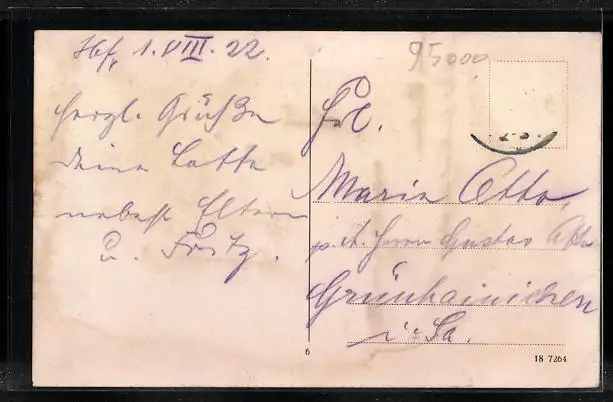 Hbf, 1. VIII. 22.
herzl. Grüße
deine Lotte
nebst Eltern
u. Fritz.
95000
Frl.
Marie Otto,
p. A. Herrn Gustav Otto
Grünhainichen
i. Sa.
6
18 7264